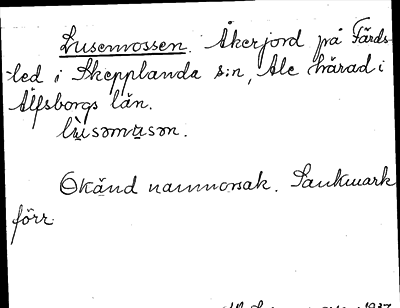 Lusenrossen. Åkerjord på Färds-
led i Skepplanda s:n, Ale härad i
Älfsborgs län.
lùsəmu̲sən.
Okänd namnorsak. Sankmark
förr.
1937